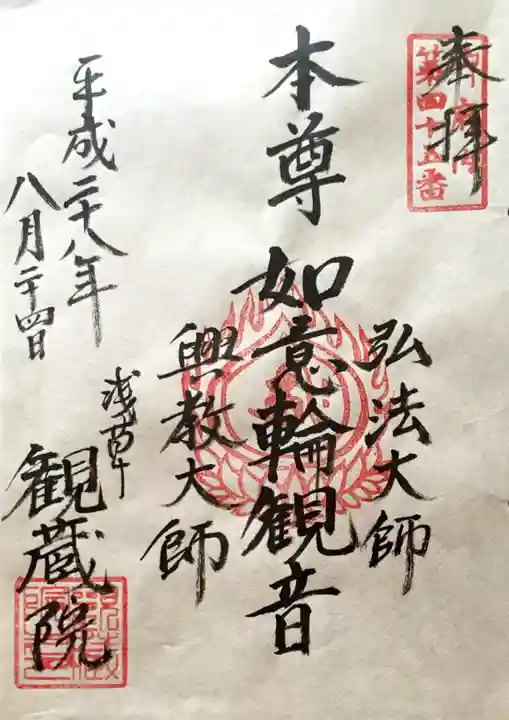 奉拝
第四十五番
弘法大師
本尊 如意輪観音
興教大師
平成二十八年
八月二十四日
浅草
観蔵院